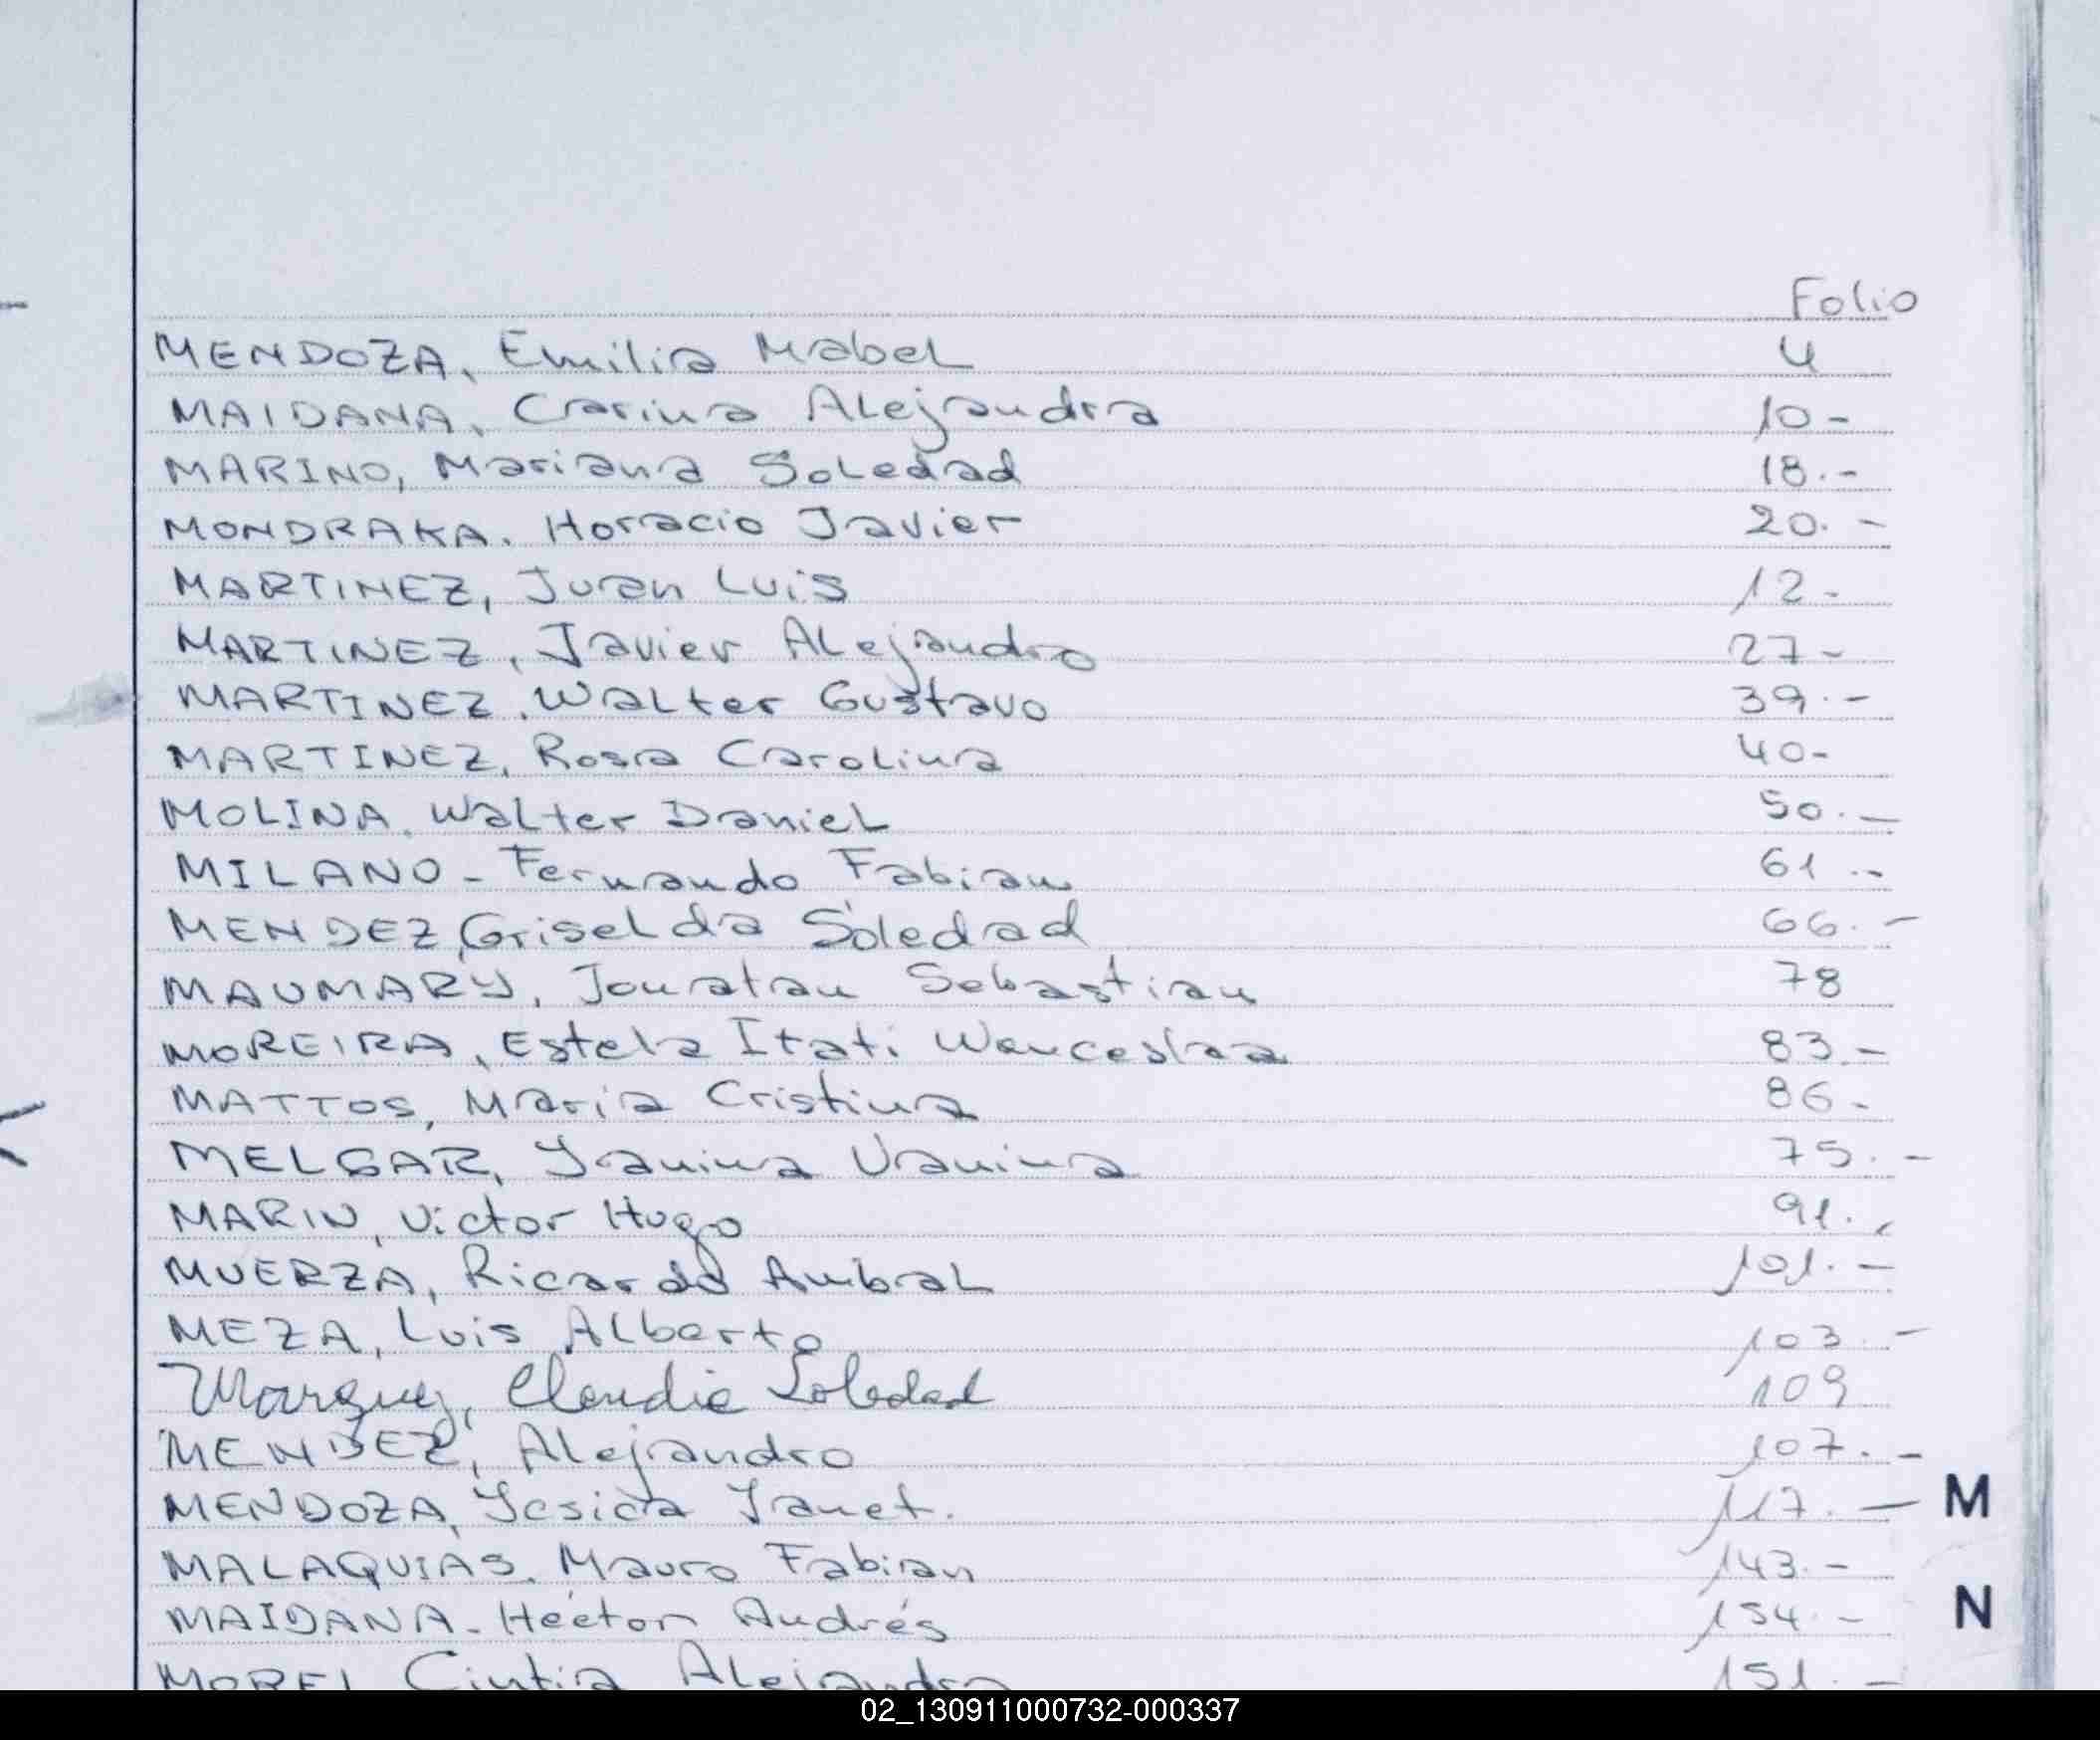 Folio
MENDOZA, Emilia Mabel 4
MAIDANA, Carina Alejandra 10-
MARINO, Mariana Soledad 18.-
MONDRAKA. Horacio Javier 20.-
MARTINEZ, Juan Luis 12-
MARTINEZ, Javier Alejandro 27-
MARTINEZ, Walter Gustavo 39.-
MARTINEZ, Rosa Carolina 40-
MOLINA, Walter Daniel 50.-
MILANO - Fernando Fabian 61.-
MENDEZ, Griselda Soledad 66.-
MAUMARY, Jonatan Sebastian 78
MOREIRA, Estela Itati Wenceslaa 83.-
MATTOS, Maria Cristina 86-
MELGAR, Yanina Vanina 75.-
MARIN, Victor Hugo 91.-
MUERZA, Ricardo Anibal 101.-
MEZA, Luis Alberto 103.-
Marquez, Claudia Soledad 109
MENDEZ, Alejandro 107.-
MENDOZA, Yesica Janet. 117.- M
MALAQUIAS. Mauro Fabian 143.-
MAIDANA - Héctor Andrés 154.- N
MOREL Cintia Alejandra 151.-
02_130911000732-000337